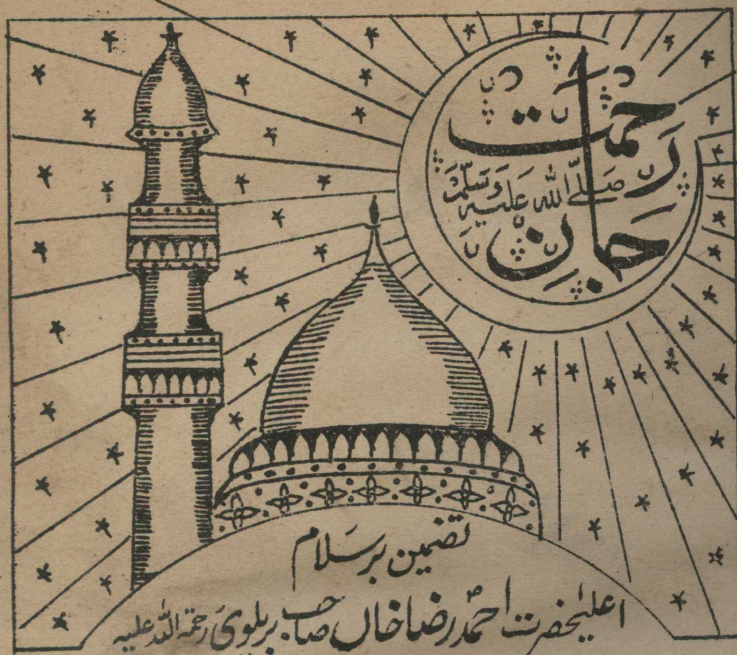 جانِ رحمت
صلّی اللہ علیہ وسلّم
تضمین بر سلام
اعلیٰحضرت احمد رضا خاں صاحب بریلوی رحمۃ اللہ علیہ